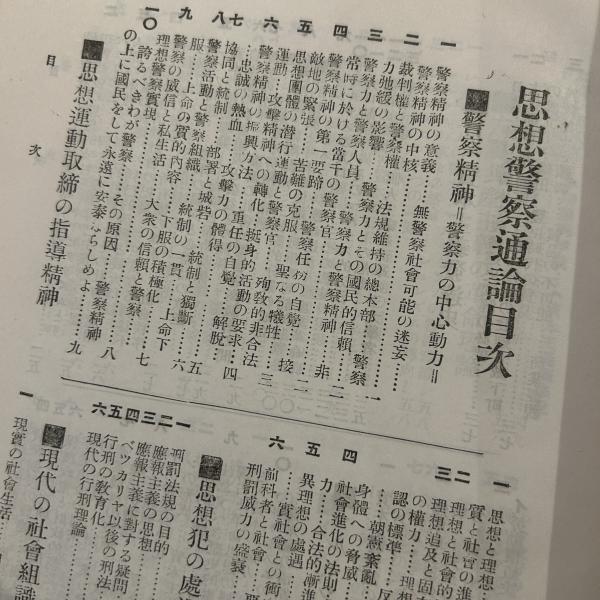 思想警察通論目次
警察精神＝警察力の中心動力＝
一 警察精神の意義……………一
二 警察精神の中核　無警察社會可能の迷妄……
裁判權と警察權　法規維持の總本部　警察
力弛緩の影響……………一
三 警察力と警察人員　警察力とその國民的信頼……二
四 當時に於ける當千の警察官　警察力と警察精神……二
五 警察精神の第一要諦　非
敵地の緊張　苦難の克服　警察任務の自覺……二
六 思想團體の潜行運動と警察官　聖なる犠牲　接
運動　攻撃精神への轉化　挺身的活動の要求……三
七 警察精神の振興方法　殉敎的非合法
…忠誠の熱血　攻撃力の體得　重任の自覺……四
八 協同と統制　部署と城砦　解脫……五
警察活動と警察組織　統制の一貫　統制と獨斷
服……上命の質的內容　下服の積極化　上命下……六
九 警察の威信と私生活　大衆の信頼と警察……七
理想警察實現
一〇 誇るべきわが警察　その原因　警察精神
の上に國民をして永遠に安泰ならしめよ……八
思想運動取締の指導精神……九
目次
一 思想と理想
質と社會の進
二 理想と社會的
三 理想追及と固
の權力　理想
認の標準
朝憲紊亂　反
四 身體への脅威
社會進化の法則
五 力　合法的漸進
異理想の處遇
……實社會との衝
六 前科者と社會
刑罰威力の盛衰
思想犯の處
一 刑罰法規の目的
二 應報主義の思想
三 應報主義に對する疑問
四 ベツカリヤ以後の刑法
五 行刑の敎育化
六 現代の行刑理論
現代の社會組織
一 現實の社會生活